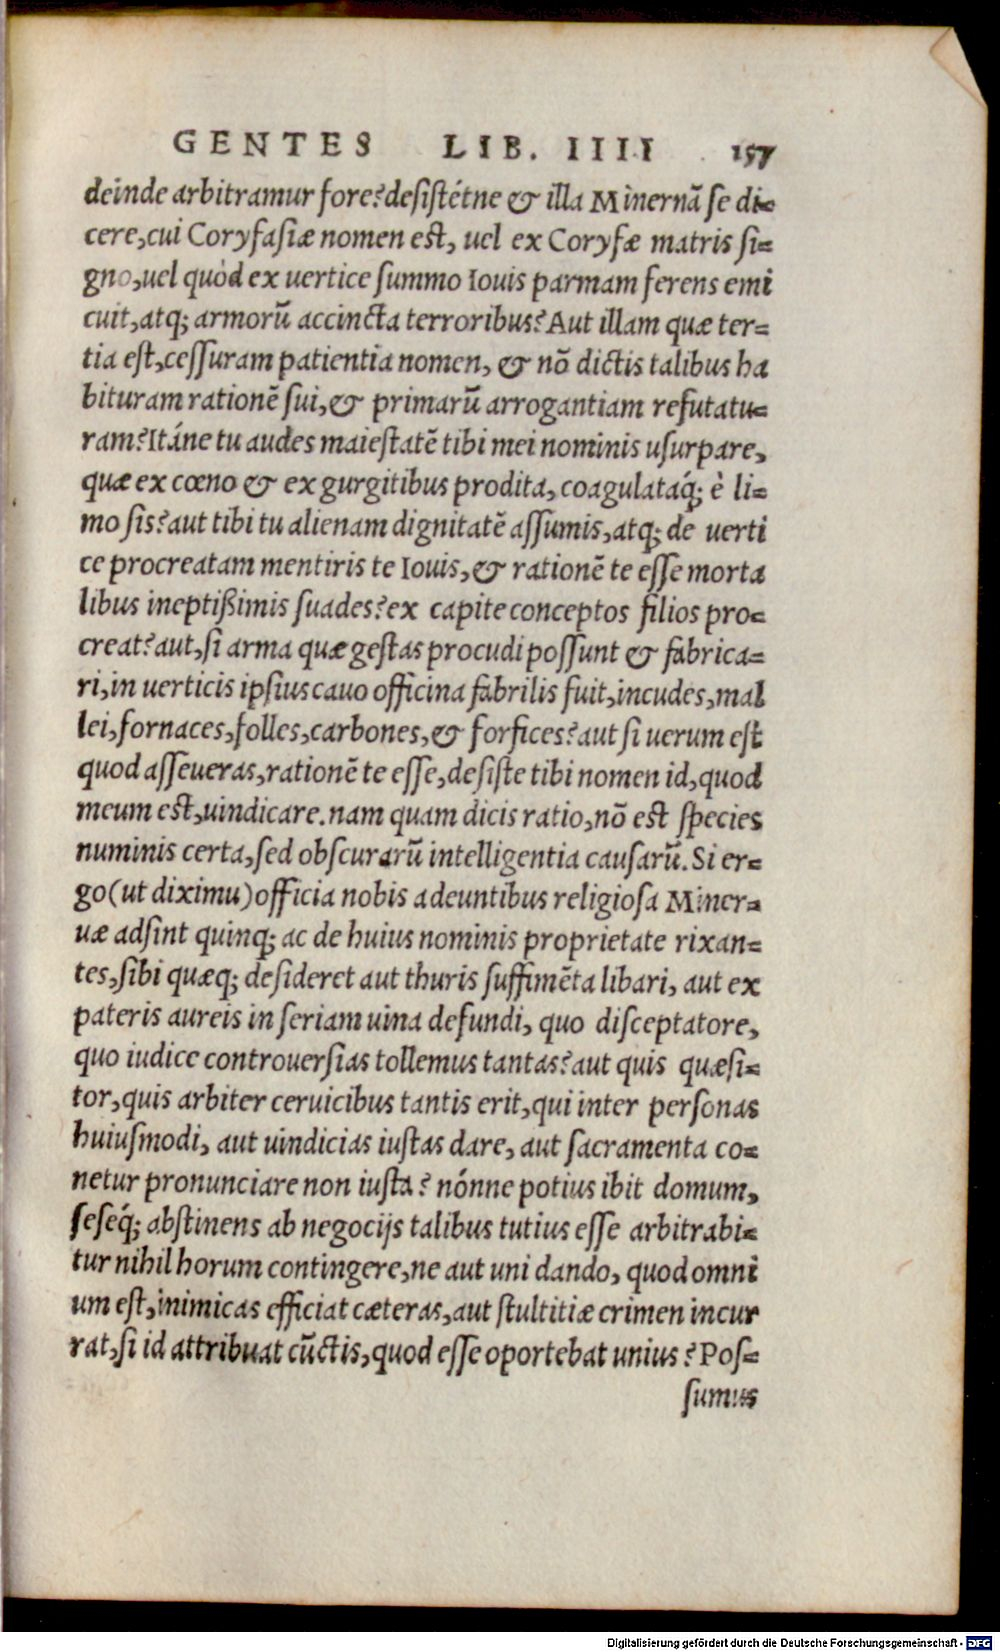 GENTES LIB. IIII 157
deinde arbitramur fore?desistétne & illa Mineruã se di=
cere,cui Coryfasiæ nomen est, uel ex Coryfæ matris si=
gno,uel quòd ex uertice summo Iouis parmam ferens emi
cuit,atq; armorũ accincta terroribus?Aut illam quæ ter=
tia est,cessuram patientia nomen, & nõ dictis talibus ha
bituram rationẽ sui,& primarũ arrogantiam refutatu=
ram?Itáne tu audes maiestatẽ tibi mei nominis usurpare,
quæ ex cœno & ex gurgitibus prodita, coagulatáq; è li=
mo sis?aut tibi tu alienam dignitatẽ assumis,atq; de uerti
ce procreatam mentiris te Iouis,& rationẽ te esse morta
libus ineptißimis suades?ex capite conceptos filios pro=
creat?aut,si arma quæ gestas procudi possunt & fabrica=
ri,in uerticis ipsius cauo officina fabrilis fuit,incudes,mal
lei,fornaces,folles,carbones,& forfices?aut si uerum est
quod asseueras,rationẽ te esse,desiste tibi nomen id,quod
meum est,uindicare.nam quam dicis ratio,nõ est species
numinis certa,sed obscurarũ intelligentia causarũ.Si er=
go(ut diximu)officia nobis adeuntibus religiosa Miner=
uæ adsint quinq; ac de huius nominis proprietate rixan=
tes,sibi quæq; desideret aut thuris suffimẽta libari, aut ex
pateris aureis in seriam uina defundi, quo disceptatore,
quo iudice controuersias tollemus tantas?aut quis quæsi=
tor,quis arbiter ceruicibus tantis erit,qui inter personas
huiusmodi, aut uindicias iustas dare, aut sacramenta co=
netur pronunciare non iusta? nónne potius ibit domum,
seseq́; abstinens ab negocijs talibus tutius esse arbitrabi=
tur nihil horum contingere,ne aut uni dando, quod omni
um est,inimicas efficiat cæteras,aut stultitiæ crimen incur
rat,si id attribuat cũctis,quod esse oportebat unius?Pos=
sumus
Digitalisierung gefördert durch die Deutsche Forschungsgemeinschaft - DFG